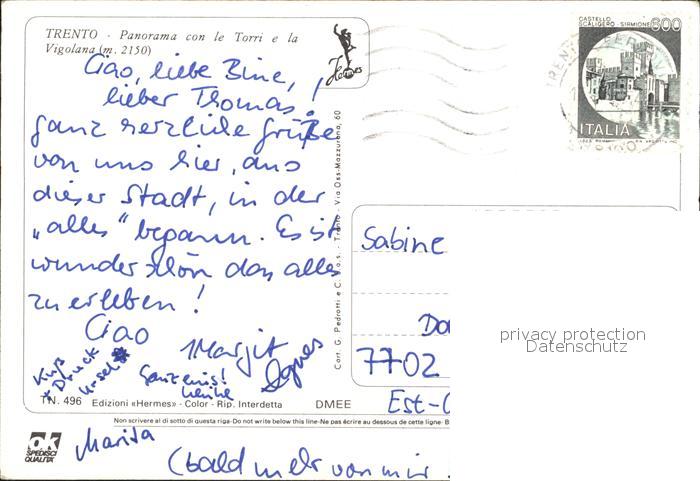 TRENTO - Panorama con le Torri e la
Vigolana (m. 2150)
Ciao, liebe Bine,
lieber Thomas!
ganz herzliche Grüße
von uns hier, aus
dieser Stadt, in der
„alles“ begann. Es ist
wunderschön das alles
zu erleben!
Ciao
Margit
Agnes
Kuß
+ Druck
Ursel
Ganz enis!
Marisa
(bald mehr von mir
TN. 496 Edizioni «Hermes» - Color - Rip. Interdetta DMEE
Non scrivere al di sotto di questa riga-Do not write below this line-Ne pas écrire au dessous de cette ligne- B
ok
SPEDISCI
QUALITÀ
Hermes
Cart. G. Pedrotti e C. s.a.s. - Trento - Via Oss-Mazzurana, 60
CASTELLO
SCALIGERO - SIRMIONE
600
ITALIA
Sabine
7702
privacy protection
Datenschutz